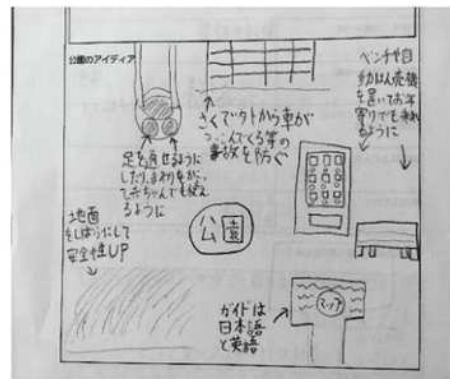 公園のアイディア
ベンチや自
動はん売機
を置いてお年
寄りでも来れ
るように
さくで外から車が
つっこんでくる等の
事故を防ぐ
足を通せるように
したり、まわりを
赤ちゃんでも使え
るように
公園
地面
をしばふにして
安全性UP
ガイドは
日本語
と英語
マップ